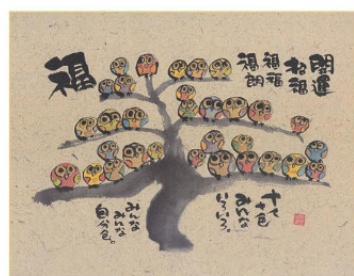 開運
招福
福福
福朗
福
十人十色
みんな
いろいろ。
みんな
みんな
自分色。